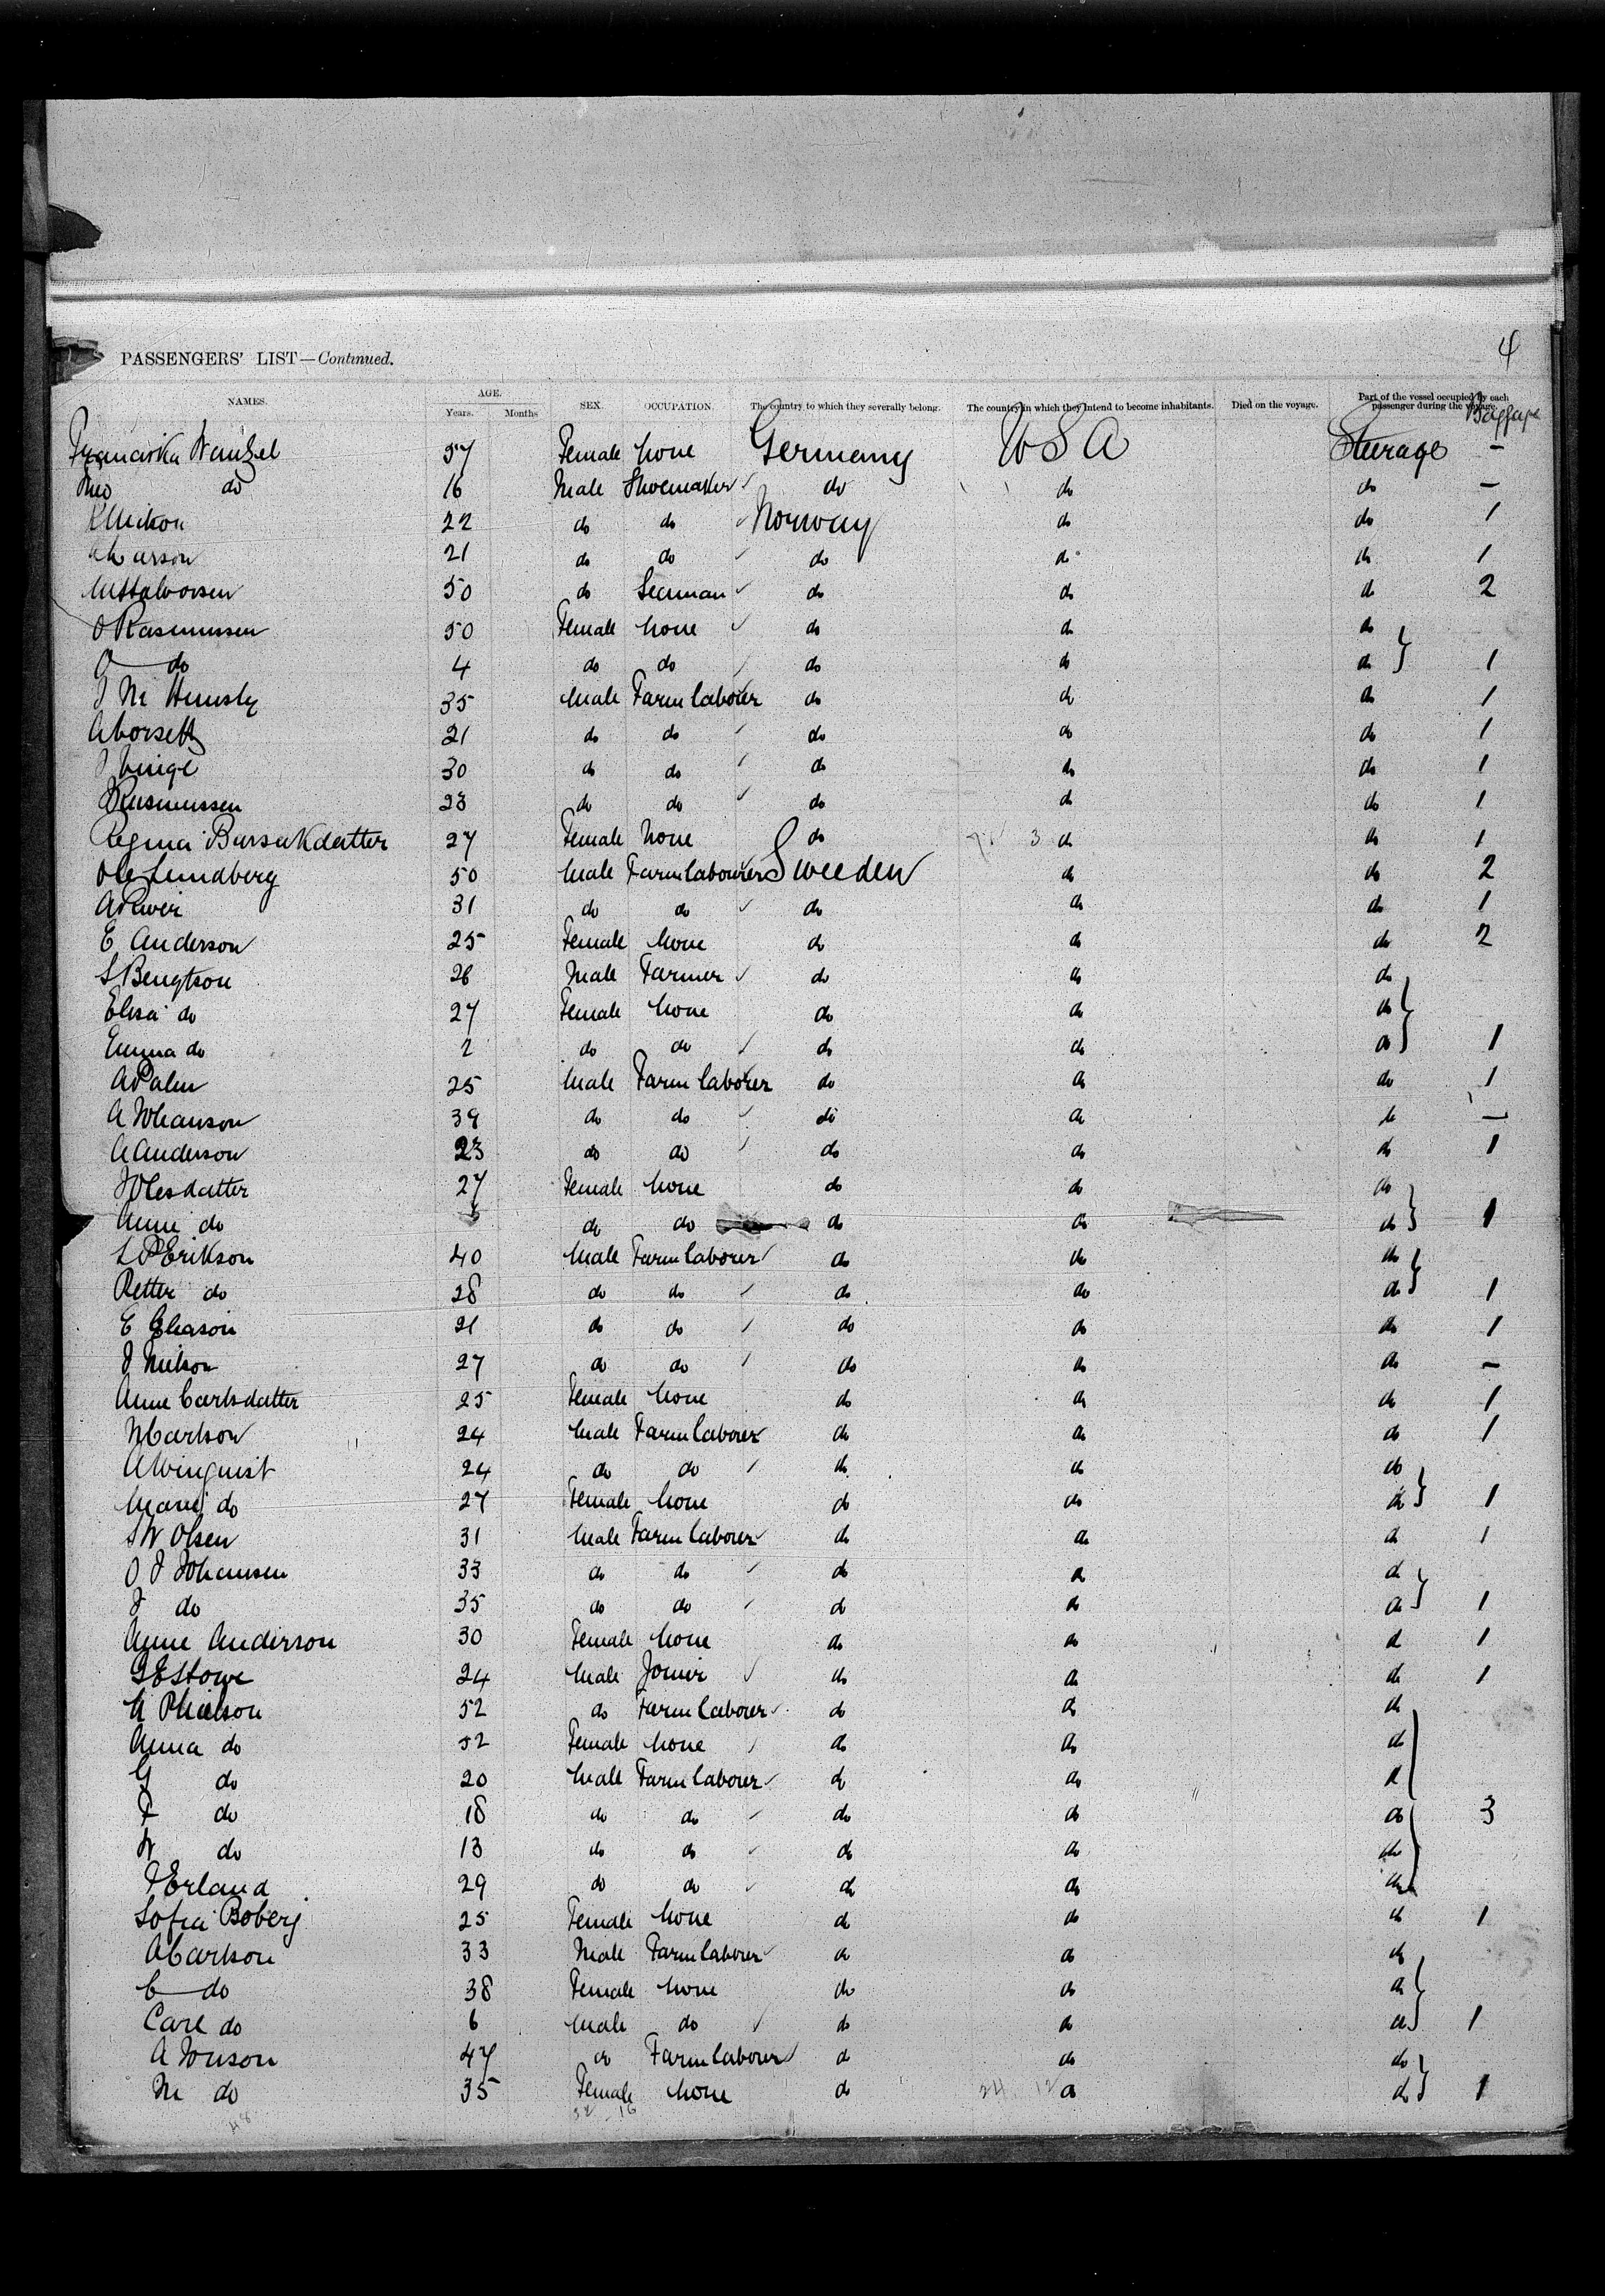 4
PASSENGERS' LIST—Continued.
NAMES. AGE. Years. Months SEX. OCCUPATION. The country to which they severally belong. The country in which they intend to become inhabitants. Died on the voyage. Part of the vessel occupied by each passenger during the voyage. Baggage
Franciska Wenzel 57 Female None Germany U S A Steerage –
Theo do 16 Male Shoemaker do do do –
22 do do Norway do do 1
21 do do do do do 1
Halvorsen 50 do Seeman do do do 2
O Rasmussen 50 Female None do do do
O do 4 do do do do do 1
J M 35 Male Farm laborer do do do 1
21 do do do do do 1
30 do do do do do 1
Rasmussen 23 do do do do do 1
Regina Barsakdatter 27 Female None do do do 1
Ole Lundberg 50 Male Farm labourer Sweeden do do 2
31 do do do do do 1
E Anderson 25 Female None do do do 2
S Bengtson 26 Male Farmer do do do
Elisa do 27 Female None do do do
Emma do 2 do do do do do 1
A Palm 25 Male Farm laborer do do do 1
A Johanson 39 do do do do do –
A Anderson 23 do do do do do 1
J Olesdatter 27 Female None do do do
Anne do do do do do do 1
L P Erikson 40 Male Farm laborer do do do
Petter do 28 do do do do do 1
E Eliason 21 do do do do do 1
J Nielson 27 do do do do do –
Anne Carlsdatter 25 Female None do do do 1
N Carlson 24 Male Farm laborer do do do 1
A Winquist 24 do do do do do
Marie do 27 Female None do do do 1
S W Olsen 31 Male Farm laborer do do do 1
O J Johansen 33 do do do do do
J do 35 do do do do do 1
Anne Anderson 30 Female None do do do 1
G E Stowe 24 Male Joiner do do do 1
52 do Farm laborer do do do
Anna do 52 Female None do do do
G do 20 Male Farm laborer do do do
F do 18 do do do do do 3
W do 13 do do do do do
J Erland 29 do do do do do
Sofia Boberg 25 Female None do do do 1
A Carlson 33 Male Farm laborer do do do
C do 38 Female None do do do
Carl do 6 Male do do do do 1
A Jonson 47 do Farm labourer do do do
M do 35 Female None do do do 1
48